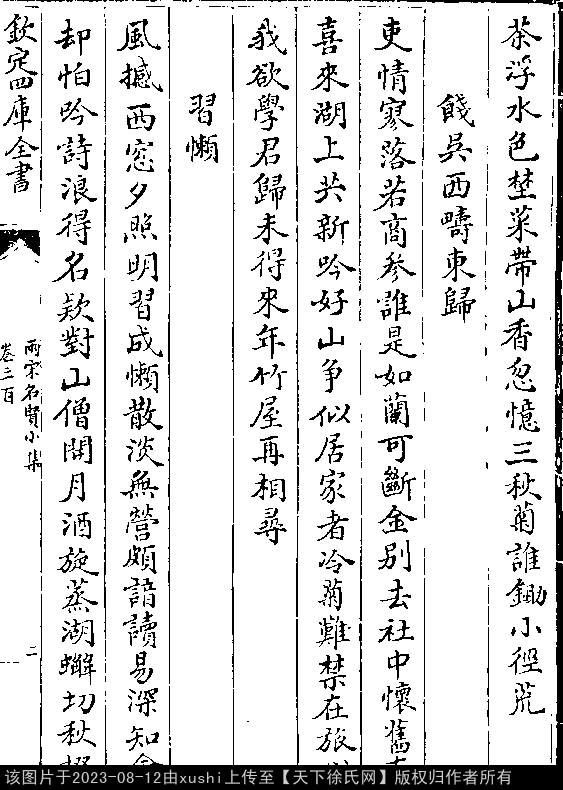 茶浮水色埜菜帶山香忽憶三秋菊誰鋤小徑荒
餞吳西疇東歸
吏情寥落若商參誰是如蘭可斷金别去社中懷舊
喜來湖上共新吟好山争似居家者冷菊難禁在旅
我欲學君歸未得來年竹屋再相尋
習懶
風撼西窓夕照明習成懶散淡無營頗諳讀易深知
却怕吟詩浪得名欵對山僧開月酒旋蒸湖蠏切秋
欽定四庫全書
兩宋名賢小集
卷三百
二
该图片于2023-08-12由xushi上传至【天下徐氏网】版权归作者所有